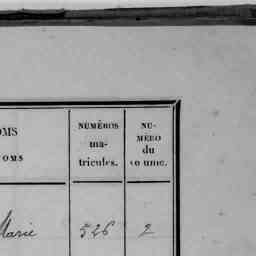 OMS
OMS
NUMÉROS
ma-
tricules.
NU-
MÉRO
du
vo ume.
Marie 526 2